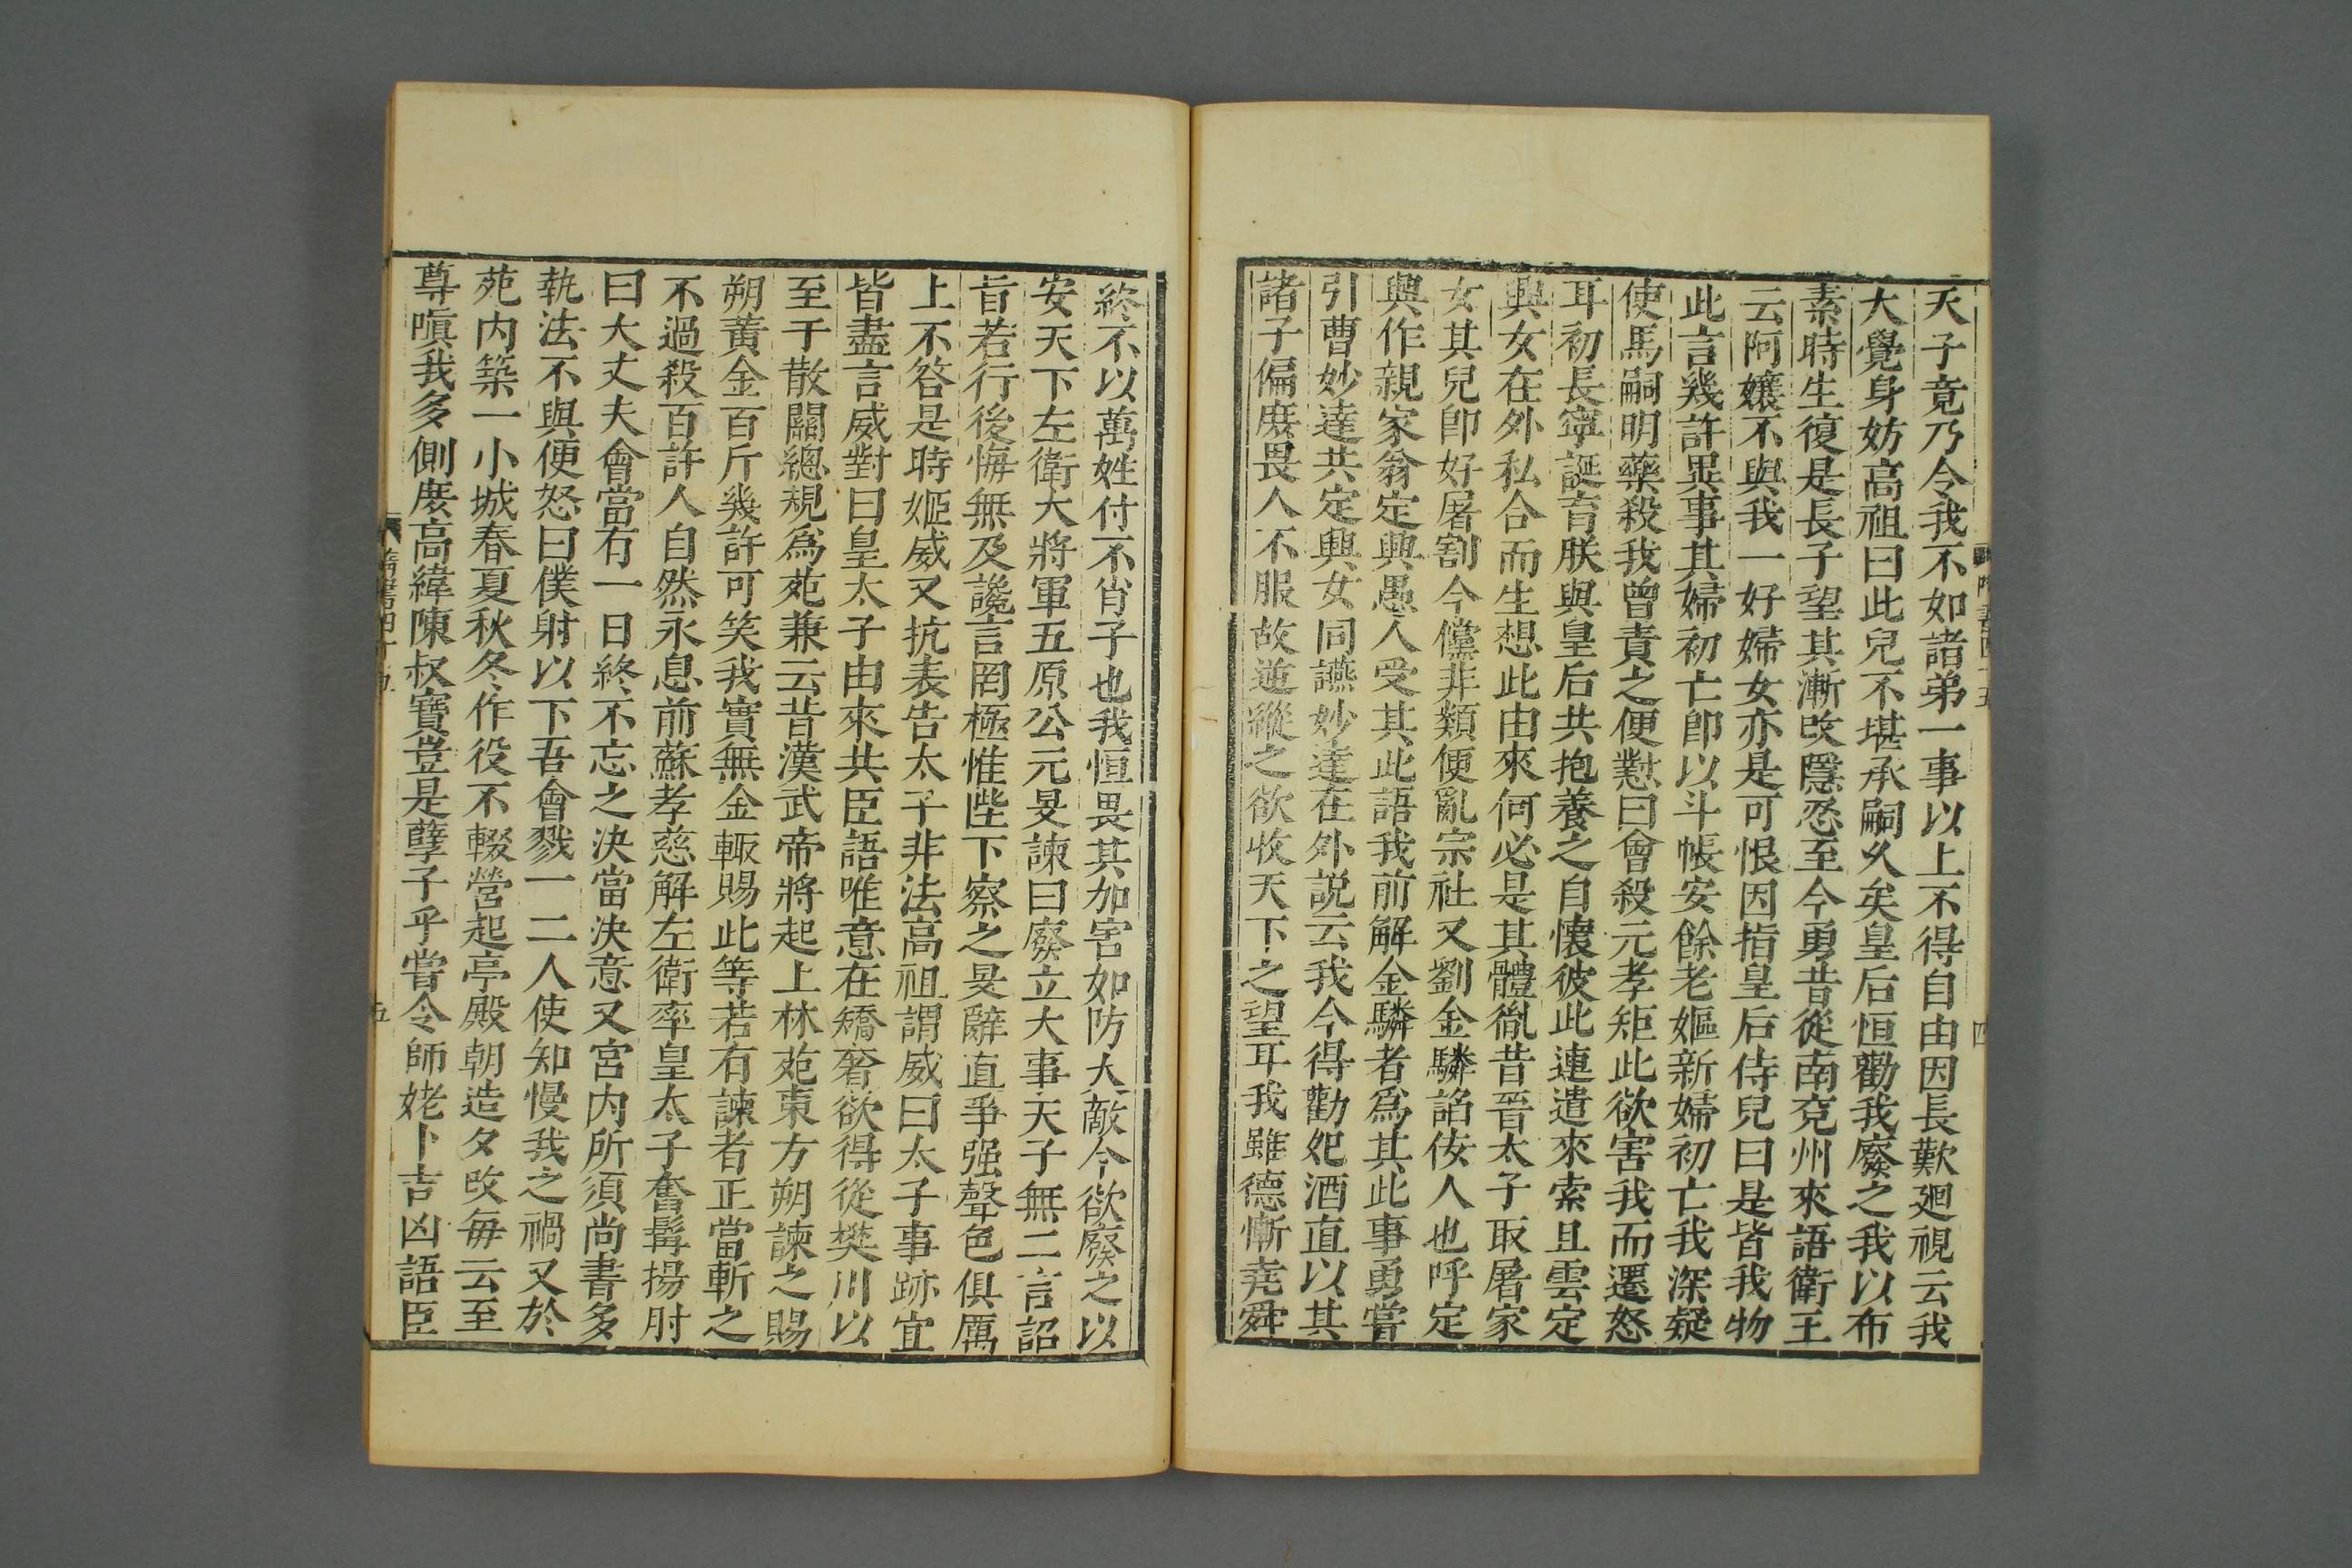 天子竟乃令我不如諸弟一事以上不得自由因長歎廻視云我
大覺身妨高祖曰此兒不堪承嗣久矣皇后恒勸我廢之我以布
素時生復是長子望其漸改隱忍至今勇昔從南兖州來語衛王
云阿孃不與我一好婦女亦是可恨因指皇后侍兒曰是皆我物
此言幾許異事其婦初亡卽以斗帳安餘老嫗新婦初亡我深疑
使馬嗣明藥殺我曾責之便懟曰會殺元孝矩此欲害我而遷怒
耳初長寧誕育朕與皇后共抱養之自懷彼此連遣來索且雲定
興女在外私合而生想此由來何必是其體胤昔晉太子取屠家
女其兒卽好屠割今儻非類便亂宗社又劉金驎諂佞人也呼定
興作親家翁定興愚人受其此語我前解金驎者爲其此事勇嘗
引曹妙達共定興女同讌妙達在外説云我今得勸妃酒直以其
諸子偏庶畏人不服故逆縱之欲收天下之望耳我雖德慚堯舜
終不以萬姓付不肖子也我恒畏其加害如防大敵今欲廢之以
安天下左衛大將軍五原公元旻諫曰廢立大事天子無二言詔
旨若行後悔無及讒言罔極惟陛下察之旻辭直爭强聲色俱厲
上不答是時姬威又抗表告太子非法高祖謂威曰太子事跡宜
皆盡言威對曰皇太子由來共臣語唯意在驕奢欲得從樊川以
至于散關總規爲苑兼云昔漢武帝將起上林苑東方朔諫之賜
朔黃金百斤幾許可笑我實無金輒賜此等若有諫者正當斬之
不過殺百許人自然永息前蘇孝慈解左衛率皇太子奮髯揚肘
曰大丈夫會當有一日終不忘之決當決意又宮内所須尚書多
執法不與便怒曰僕射以下吾會戮一二人使知慢我之禍又於
苑内築一小城春夏秋冬作役不輟營起亭殿朝造夕改每云至
尊嗔我多側庶高緯陳叔寶豈是孽子乎嘗令師姥卜吉凶語臣
隋書四十五
五